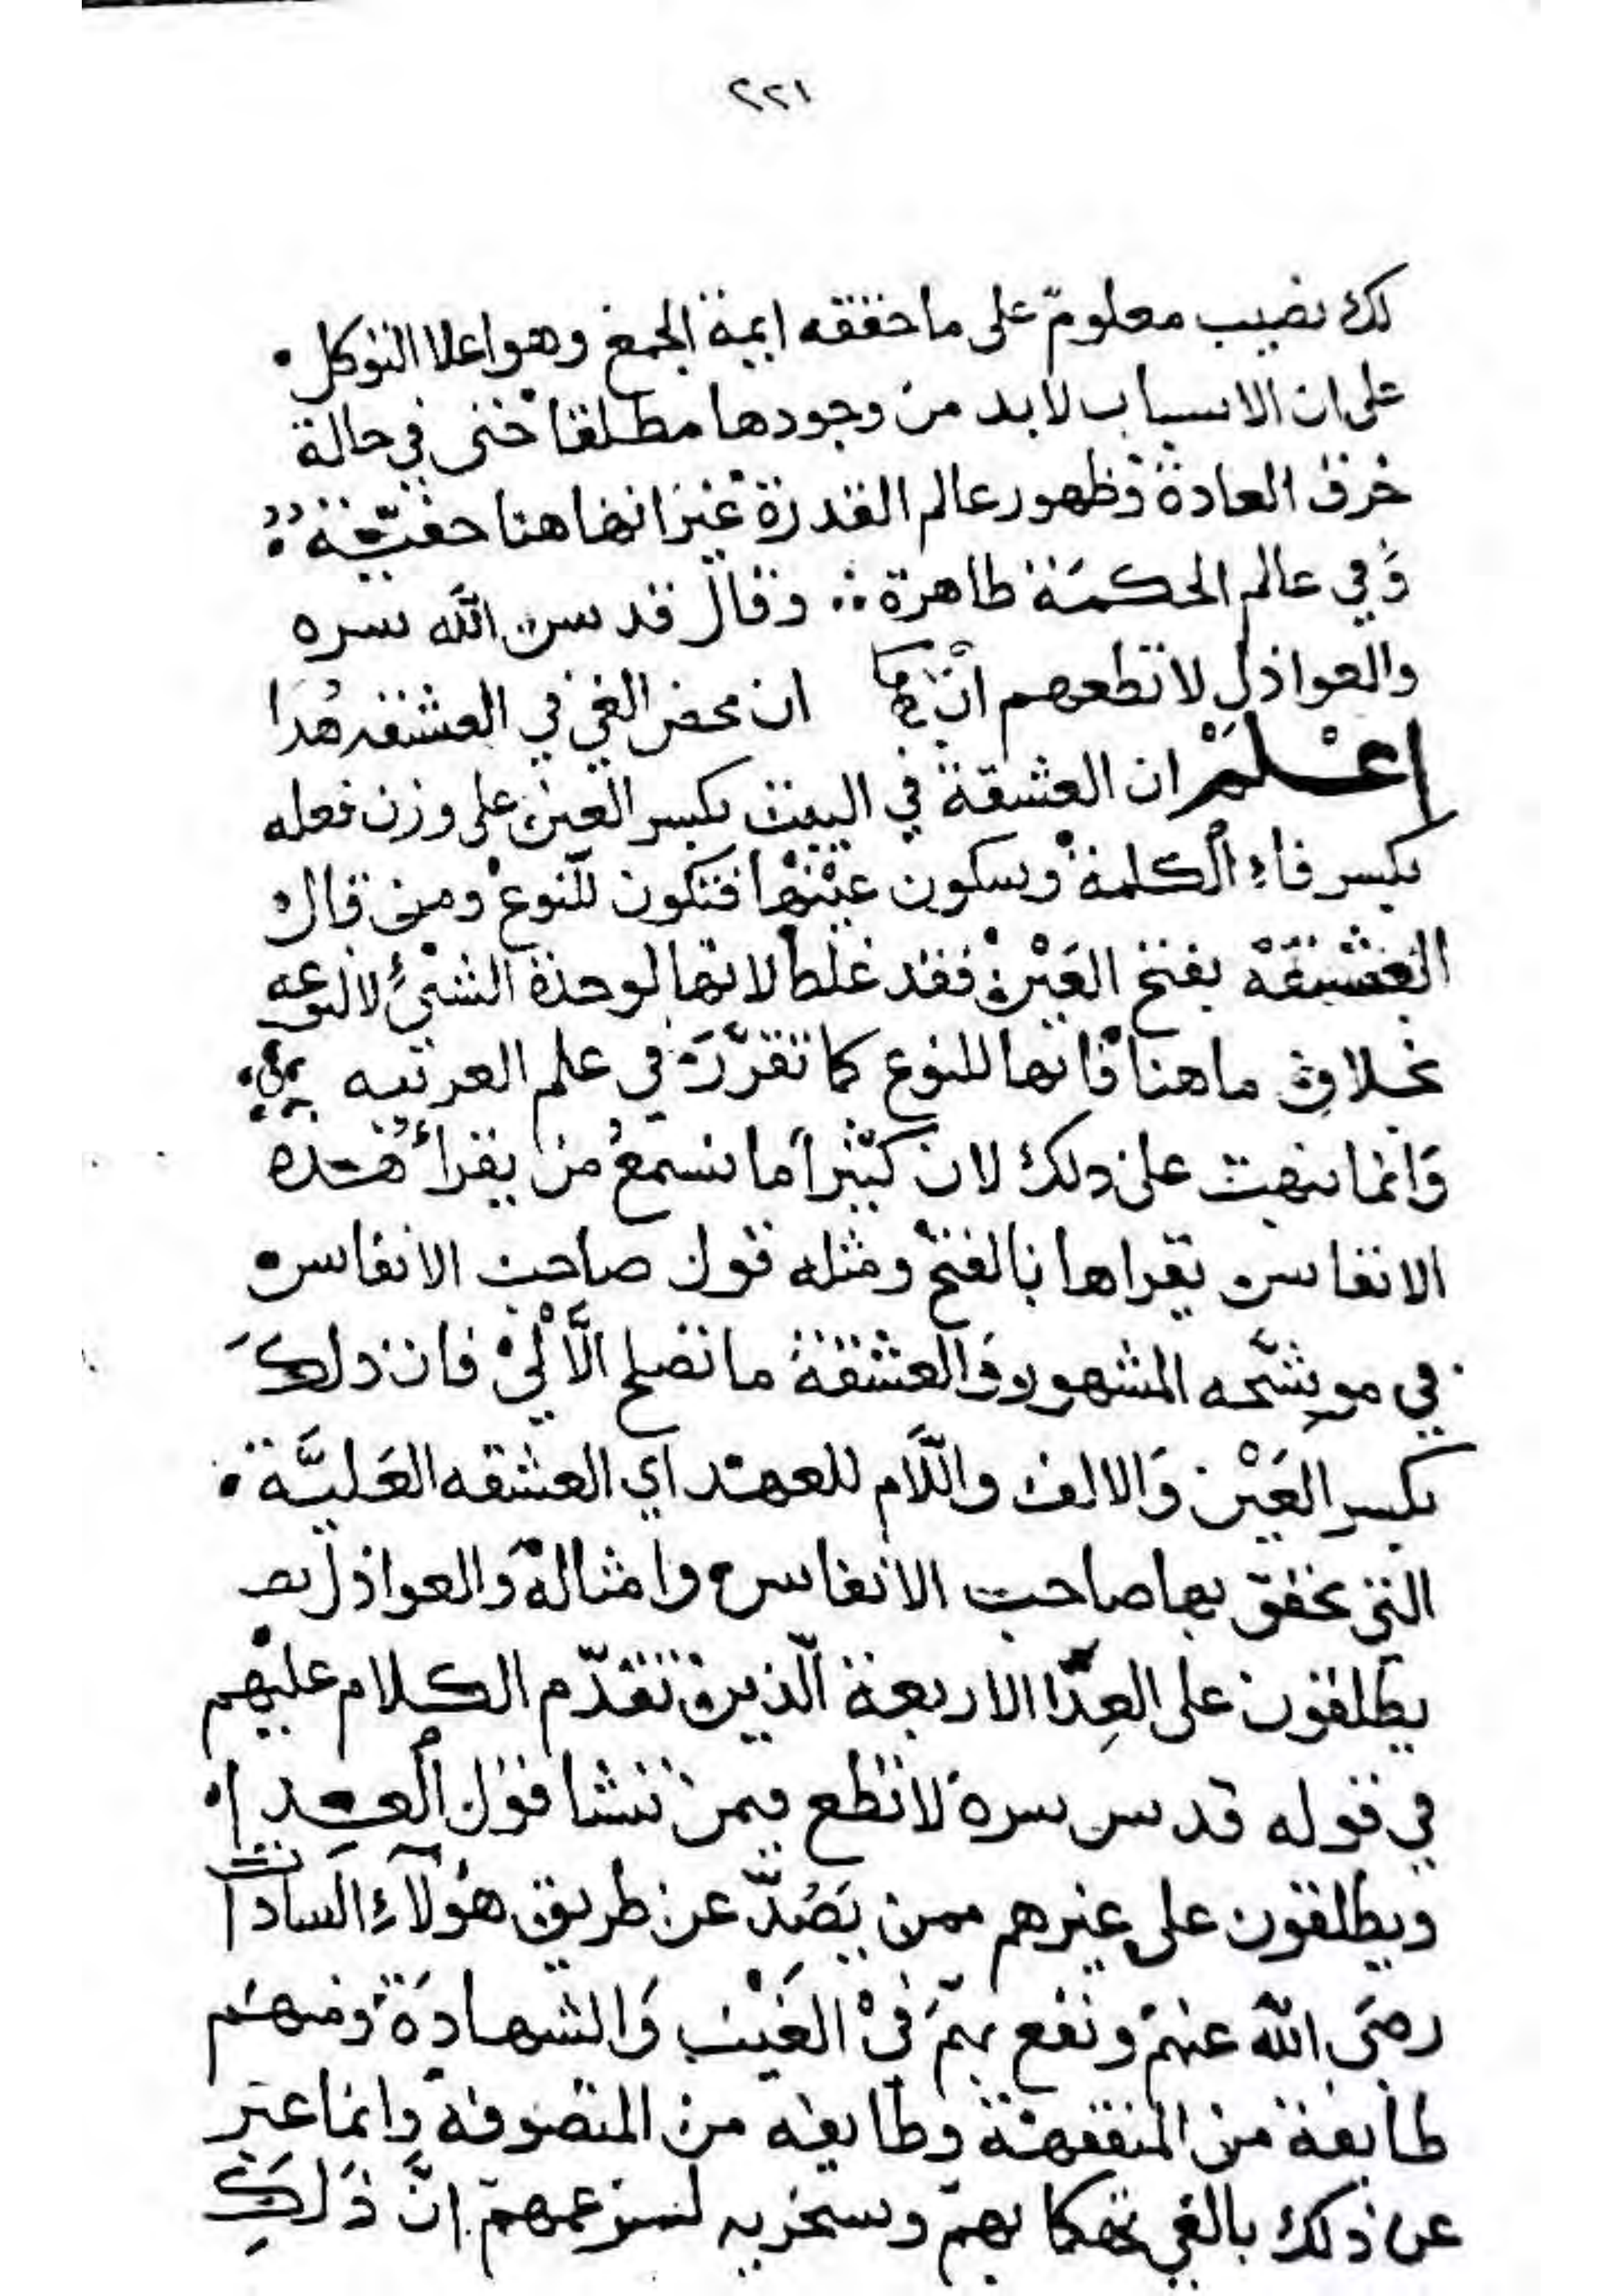 ٢٢١
لك نصيب معلوم على ما حققه ايمة الجمع وهو اعلا التوكل
على ان الاسباب لا بد من وجودها مطلقا حتى في حالة
خرق العادة وظهور عالم القدرة غير انها هنا حقيقة
وَفي عالم الحكمة ظاهرة وقال قدس الله سره
والعواذل لا تطعهم ان محض الغي في العشقه هُدا
إعْلَمْ ان العشقة في البيت بكسر العين على وزن فعله
بكسر فاءِ الكلمة وبسكون عيْنها فتكون للّنوع ومن قال
العَشقَهْ بفتح العَيْن فقد غلط لانها لوحدة الشئ لا لنوعه
بخلاف ما هنا فانها للنوع كما تقرَّرَ في علم العربيه
وَانما نبهت على ذلك لان كثيراً ما نسمعُ من يقرأ هذه
الانفاس يقراها بالفتح ومثله قول صاحب الانفاس
في موشّحه المشهور وَالعشقة ما تصلح الَّا لِيْ فان ذلكَ
بكسر العَيْن وَالالف واللّام للعهد اي العشقه العَليَّة
التي تحقق بها صاحب الانفاس وامثاله وَالعواذل
يطلقون على العِدَا الاربعة الّذين تقدّم الكلام عليهم
في قوله قدس سره لا تطع فيمن تنشا قول العِدا
ويطلقون على غيرهم ممن يَصُدّ عن طريق هؤلآءِ السادات
رضَي الله عنهم ونفع بهم في الغَيْب وَالشهادَة ومنهم
طايفة من المتفقهة وطايفه من المتصوفه وانما عبر
عن ذلك بالغي تهكما بهم وسخريه لزعمهم انَّ ذَلكَ